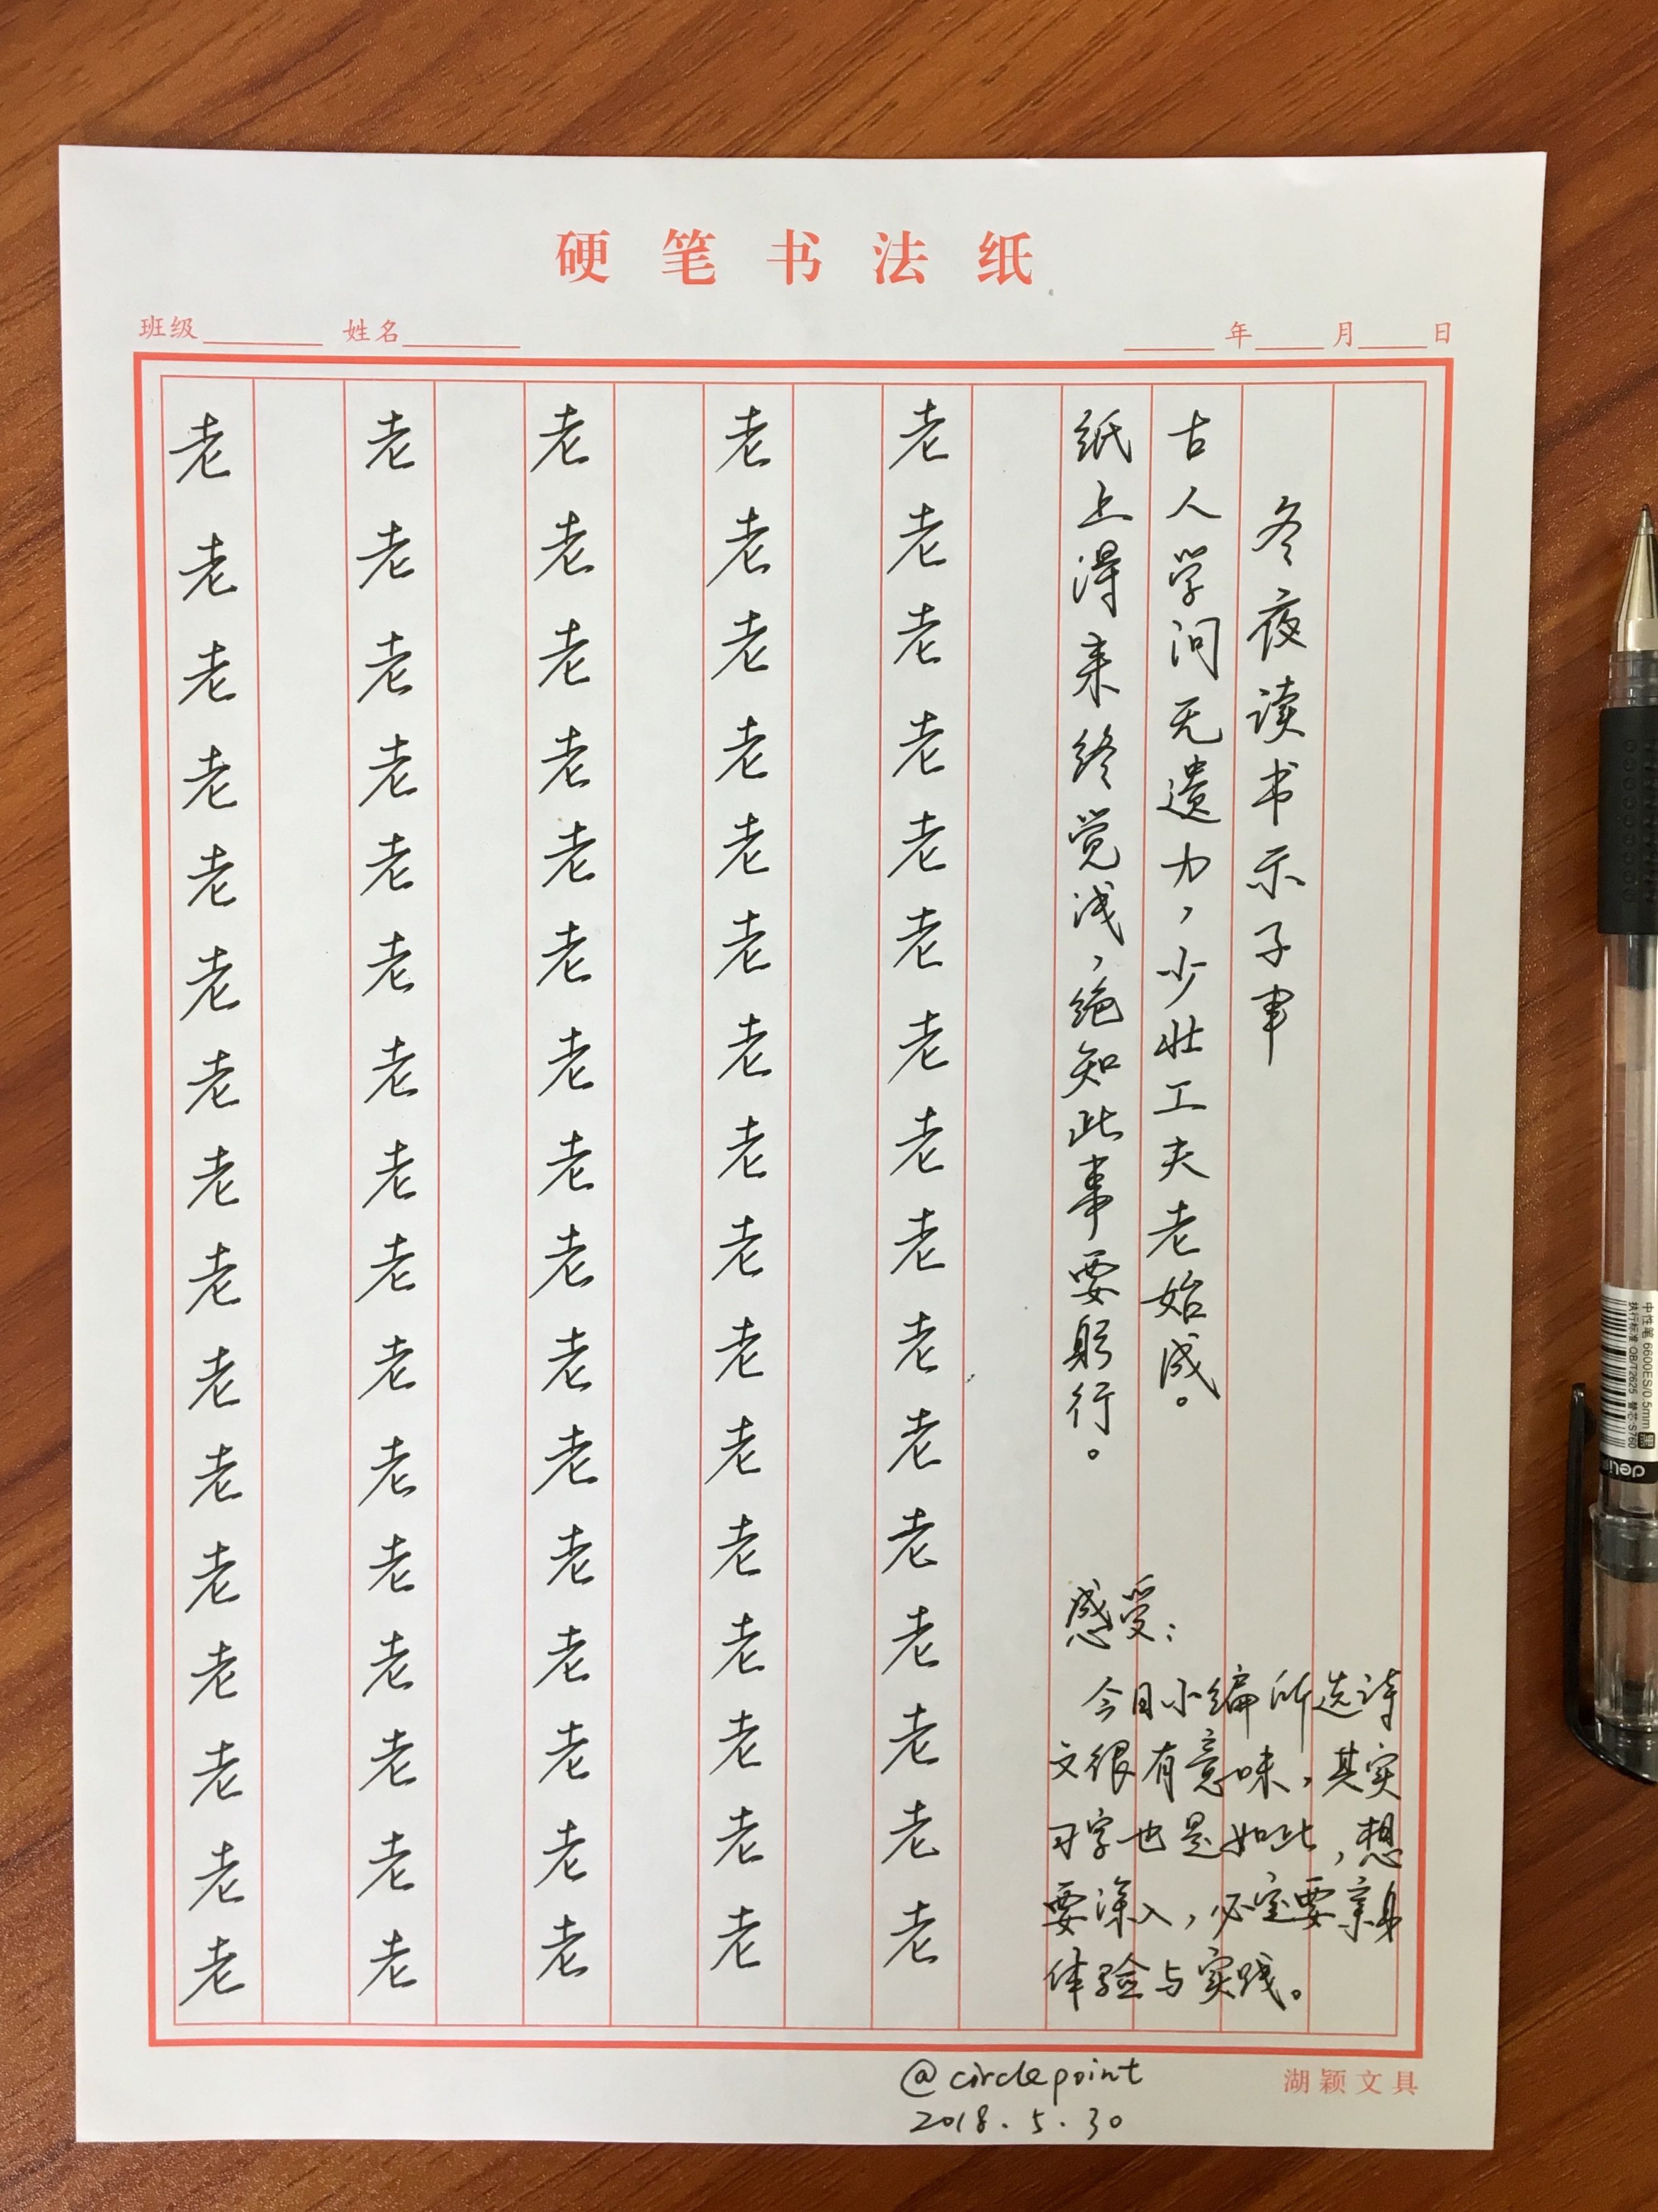 硬笔书法纸
班级 姓名 年 月 日
冬夜读书示子聿
古人学问无遗力，少壮工夫老始成。
纸上得来终觉浅，绝知此事要躬行。
感受：
今日小编所选诗
文很有意味，其实
习字也是如此，想
要深入，必定要亲身
体验与实践。
老老老老老老老老老老老老老老老老
老老老老老老老老老老老老老老老老
老老老老老老老老老老老老老老老老
老老老老老老老老老老老老老老老老
老老老老老老老老老老老老老老老老
@circlepoint
2018.5.30
湖颖文具
中性笔 6600ES/0.5mm 黑
执行标准 QB/T2625 替芯:S760
deli